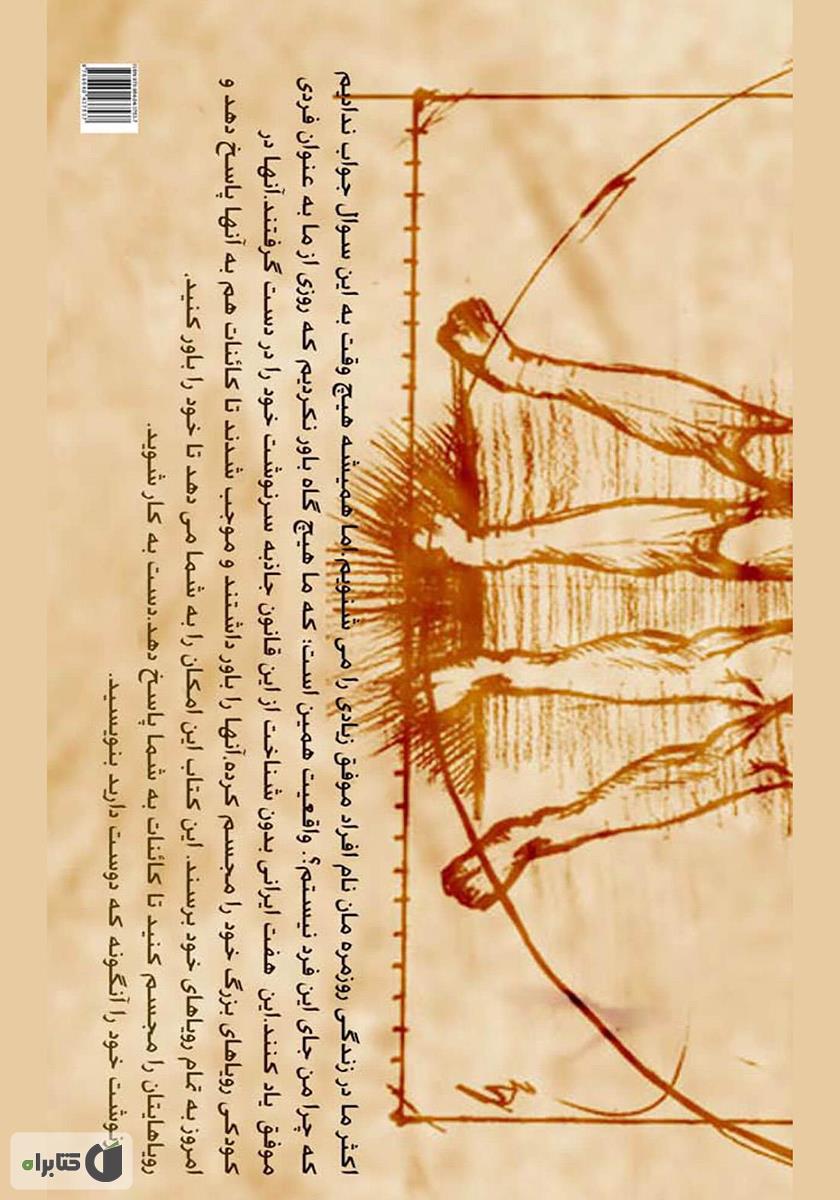 اکثر ما در زندگی روزمره مان نام افراد موفق زیادی را می شنویم.اما همیشه هیچ وقت به این سوال جواب ندادیم
که چرا من جای این فرد نیستم؟. واقعیت همین است؛ که ما هیچ گاه باور نکردیم که روزی از ما به عنوان فردی
موفق یاد کنند.این هفت ایرانی بدون شناخت از این قانون جاذبه سرنوشت خود را در دست گرفتند.آنها در
کودکی رویاهای بزرگ خود را مجسم کرده.آنها را باور داشتند و موجب شدند تا کائنات هم به آنها پاسخ دهد و
امروز به تمام رویاهای خود برسند. این کتاب این امکان را به شما می دهد تا خود را باور کنید.
رویاهایتان را مجسم کنید تا کائنات به شما پاسخ دهد.دست به کار شوید.
خود را آنگونه که دوست دارید بنویسید.
کتابراه